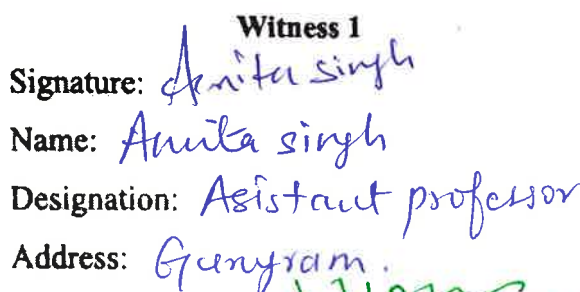 Witness 1
Signature: Anita singh
Name: Anita singh
Designation: Asistant professor
Address: Gurugram.